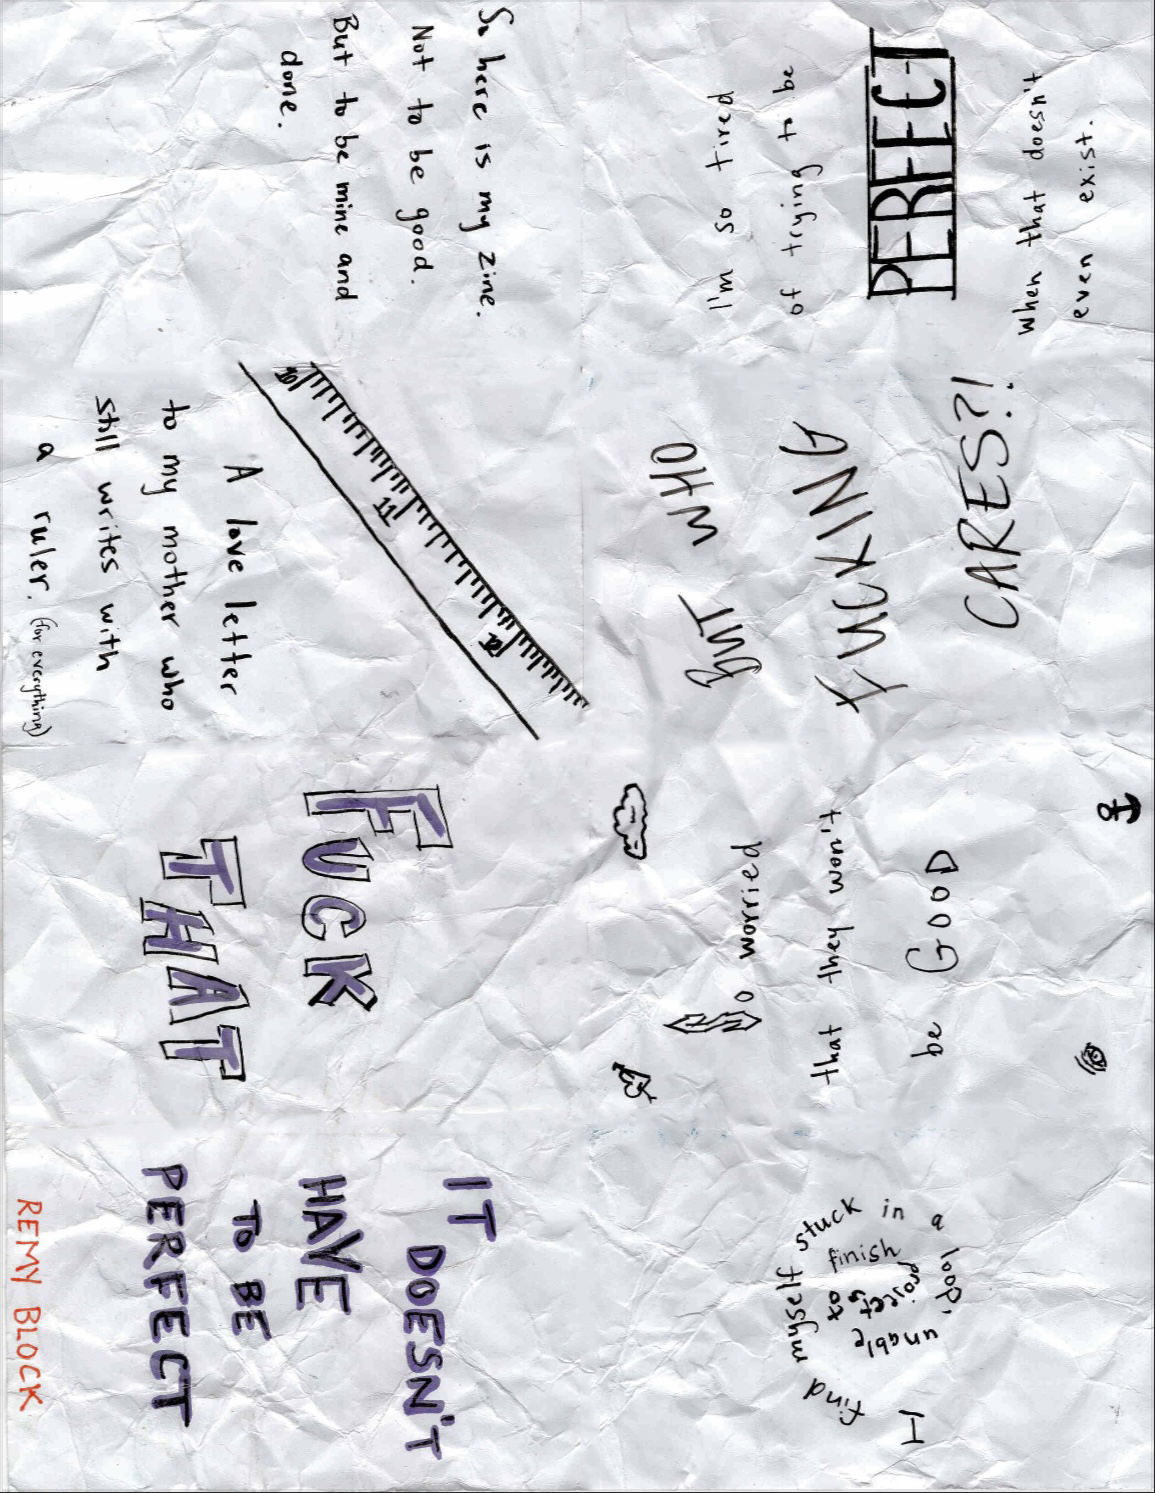 IT
DOESN'T
HAVE
TO BE
PERFECT
REMY BLOCK
I find myself stuck in a loop, unable to finish projects
So worried
that they won't
be GOOD
BUT WHO
FUCKING
CARES?!
I'm so tired
of trying to be
PERFECT
when that doesn't
even exist.
So here is my zine.
Not to be good.
But to be mine and
done.
10 11 12
A love letter
to my mother who
still writes with
a ruler. (for everything)
FUCK
THAT